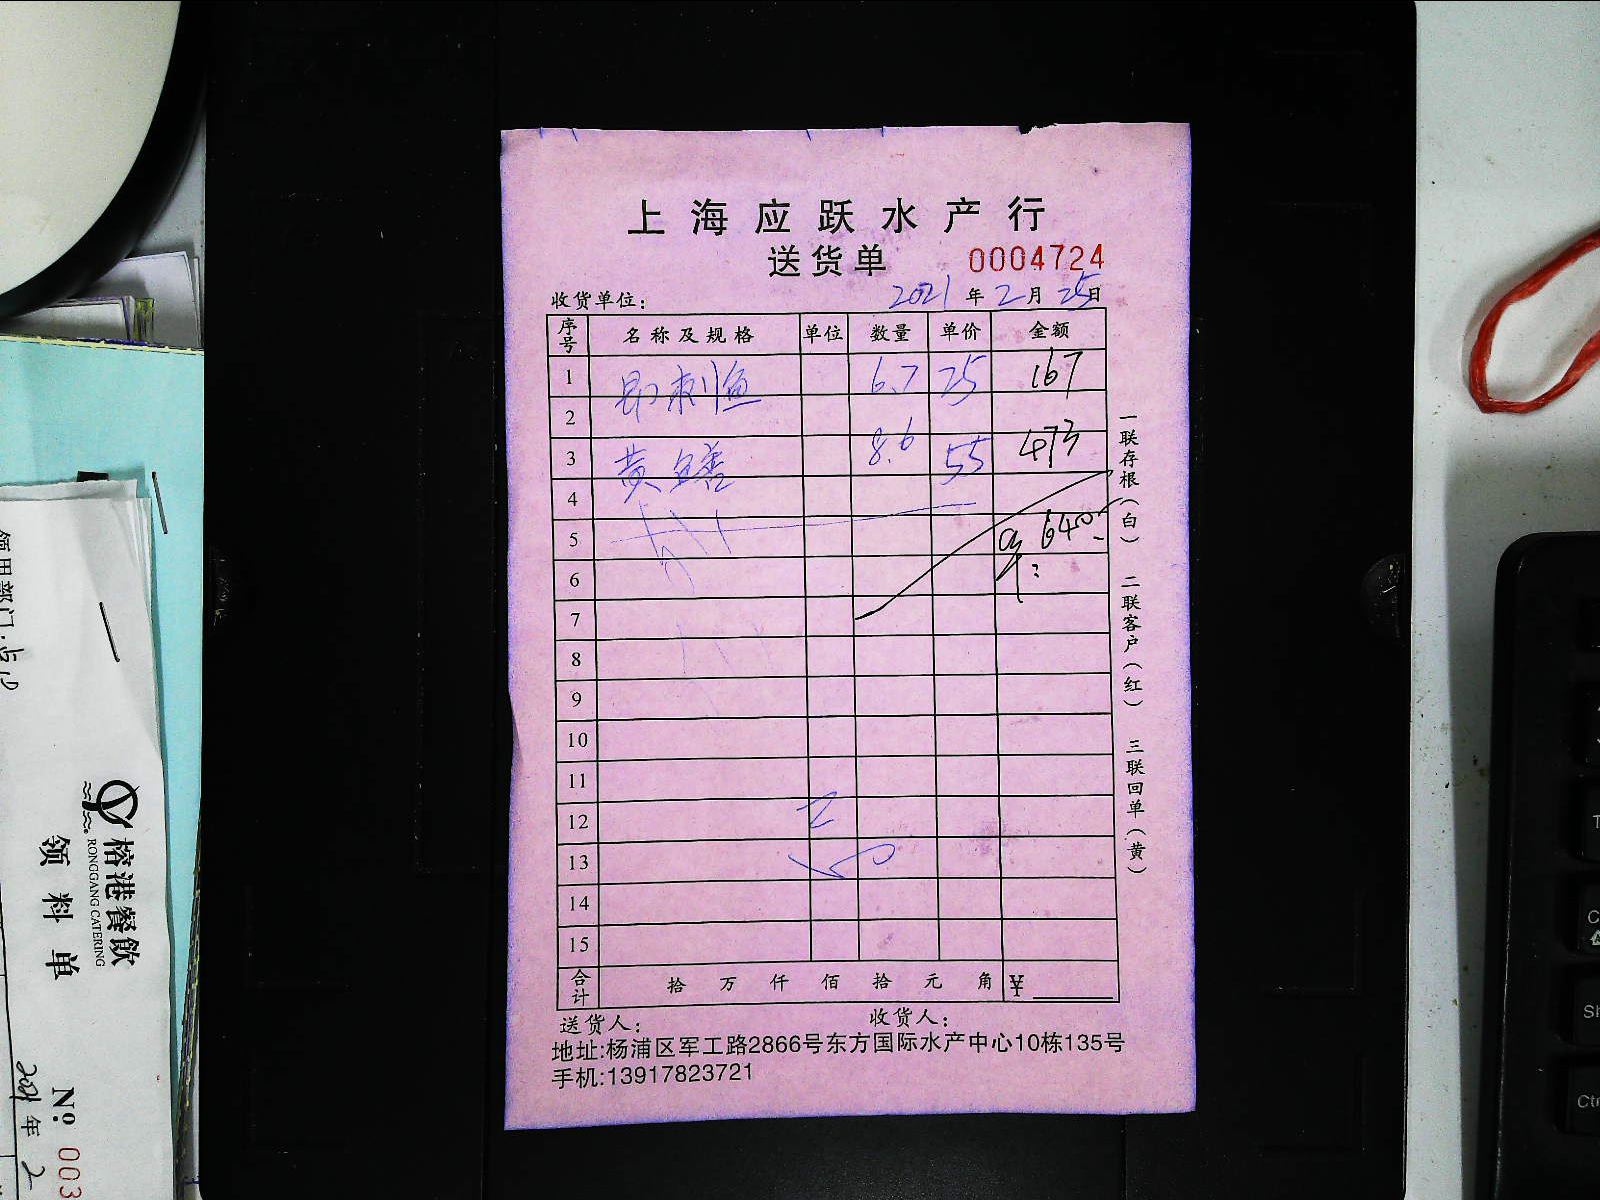 上海应跃水产行
送货单 0004724
收货单位: 2021年2月25日
序号 名称及规格 单位 数量 单价 金额
1 即刺鱼 6.7 25 167
2
3 黄鱼善 8.6 55 473
4
5 640.-
6
7
8
9
10
11
12
13
14
15
合计 拾 万 仟 佰 拾 元 角 ¥
送货人: 收货人:
地址:杨浦区军工路2866号东方国际水产中心10栋135号
手机:13917823721
一联存根(白) 二联客户(红) 三联回单(黄)
领用部门:
榕港餐飲
RONGGANG CATERING
领料单
Nº 003
2021年2